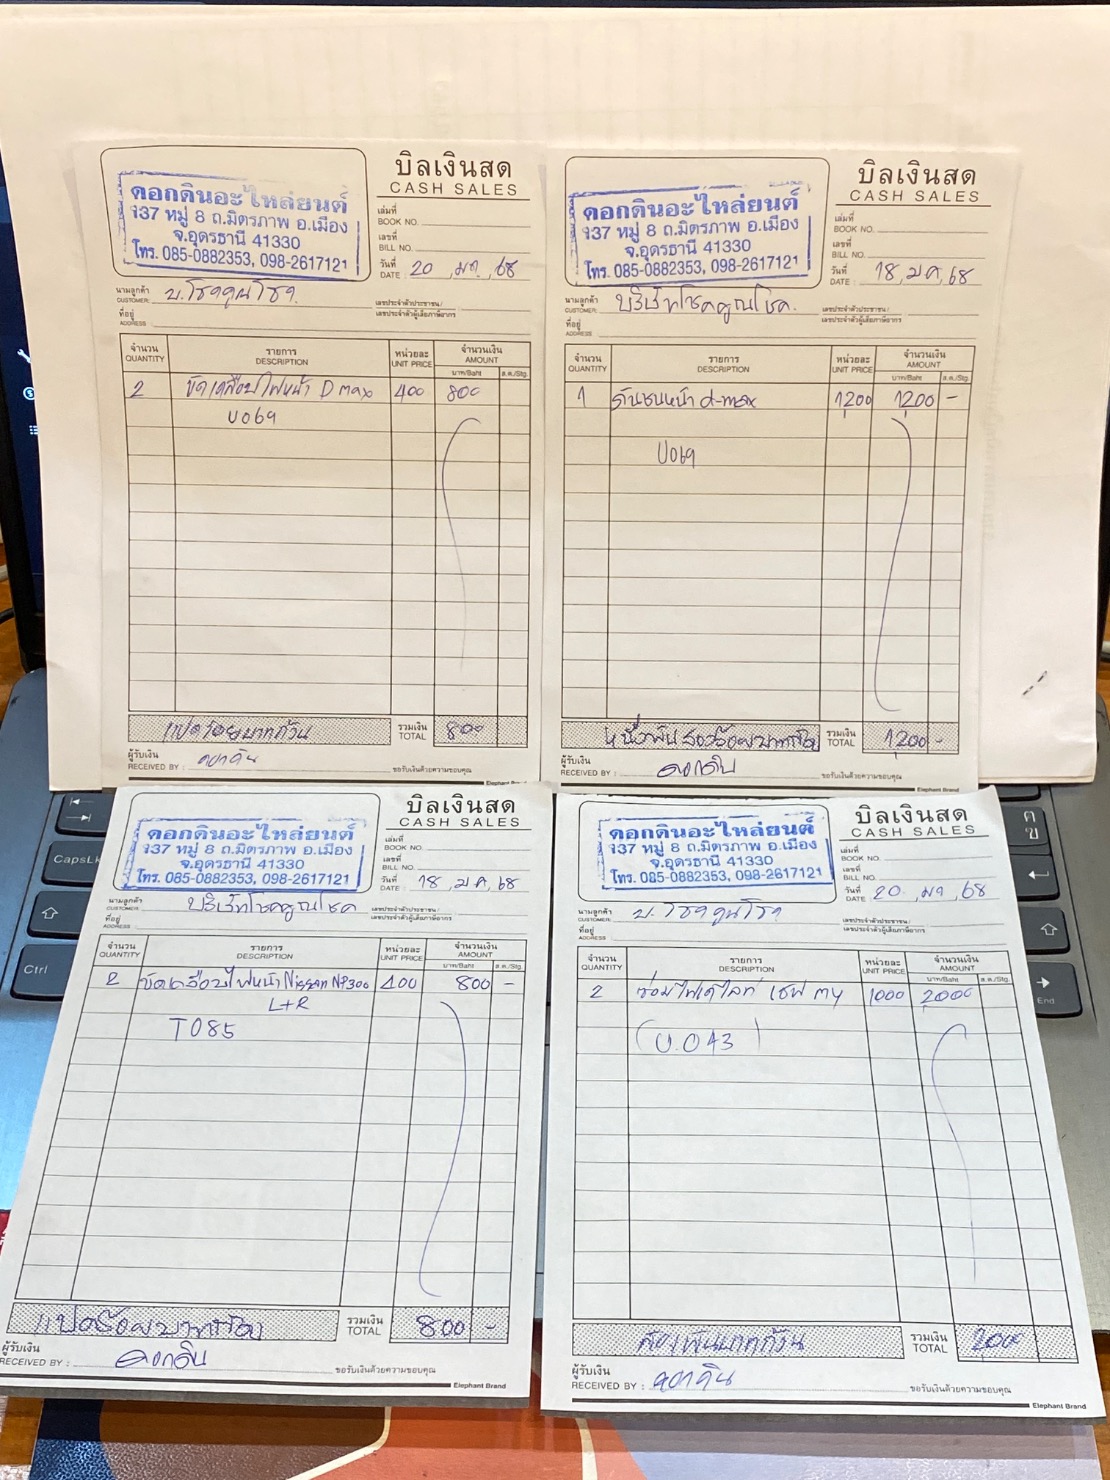 ดอกดินอะไหล่ยนต์
137 หมู่ 8 ถ.มิตรภาพ อ.เมือง
จ.อุดรธานี 41330
โทร. 085-0882353, 098-2617121
บิลเงินสด
CASH SALES
เล่มที่
BOOK NO.
เลขที่
BILL NO.
วันที่
DATE : 20 มค 68
นามลูกค้า
CUSTOMER: บ.โชคคูนโชค
เลขประจำตัวประชาชน/
เลขประจำตัวผู้เสียภาษีอากร
ที่อยู่
ADDRESS
จำนวน รายการ หน่วยละ จำนวนเงิน
QUANTITY DESCRIPTION UNIT PRICE AMOUNT
บาท/Baht ส.ต./Stg.
2 ขัดเคลือบไฟหน้า D max 400 800
U069
แปดร้อยบาทถ้วน รวมเงิน TOTAL 800
ผู้รับเงิน
RECEIVED BY : ดอกดิน ขอรับเงินด้วยความขอบคุณ
Elephant Brand
ดอกดินอะไหล่ยนต์
137 หมู่ 8 ถ.มิตรภาพ อ.เมือง
จ.อุดรธานี 41330
โทร. 085-0882353, 098-2617121
บิลเงินสด
CASH SALES
เล่มที่
BOOK NO.
เลขที่
BILL NO.
วันที่
DATE : 18, ม ค, 68
นามลูกค้า
CUSTOMER: บริษัทโชคคูณโชค.
เลขประจำตัวประชาชน/
เลขประจำตัวผู้เสียภาษีอากร
ที่อยู่
ADDRESS
จำนวน รายการ หน่วยละ จำนวนเงิน
QUANTITY DESCRIPTION UNIT PRICE AMOUNT
บาท/Baht ส.ต./Stg.
1 กันชนหน้า d-max 1,200 1,200 -
U069
หนึ่งพันสองร้อยบาทถ้วน รวมเงิน TOTAL 1,200 -
ผู้รับเงิน
RECEIVED BY : ดอกดิน ขอรับเงินด้วยความขอบคุณ
Elephant Brand
ดอกดินอะไหล่ยนต์
137 หมู่ 8 ถ.มิตรภาพ อ.เมือง
จ.อุดรธานี 41330
โทร. 085-0882353, 098-2617121
บิลเงินสด
CASH SALES
เล่มที่
BOOK NO.
เลขที่
BILL NO.
วันที่
DATE : 18, ม ค, 68
นามลูกค้า
CUSTOMER: บริษัทโชคคูณโชค
เลขประจำตัวประชาชน/
เลขประจำตัวผู้เสียภาษีอากร
ที่อยู่
ADDRESS
จำนวน รายการ หน่วยละ จำนวนเงิน
QUANTITY DESCRIPTION UNIT PRICE AMOUNT
บาท/Baht ส.ต./Stg.
2 ขัดเคลือบไฟหน้า Nissan NP300 400 800 -
L+R
T085
แปดร้อยบาทถ้วน รวมเงิน TOTAL 800 -
ผู้รับเงิน
RECEIVED BY : ดอกดิน ขอรับเงินด้วยความขอบคุณ
Elephant Brand
ดอกดินอะไหล่ยนต์
137 หมู่ 8 ถ.มิตรภาพ อ.เมือง
จ.อุดรธานี 41330
โทร. 085-0882353, 098-2617121
บิลเงินสด
CASH SALES
เล่มที่
BOOK NO.
เลขที่
BILL NO.
วันที่
DATE 20 มค 68
นามลูกค้า
CUSTOMER: บ.โชคคูนโชค
เลขประจำตัวประชาชน/
เลขประจำตัวผู้เสียภาษีอากร
ที่อยู่
ADDRESS
จำนวน รายการ หน่วยละ จำนวนเงิน
QUANTITY DESCRIPTION UNIT PRICE AMOUNT
บาท/Baht ส.ต./Stg.
2 ซ่อมไฟเดไลท์ 1000 2000
(U.043)
สองพันบาทถ้วน รวมเงิน TOTAL 2000
ผู้รับเงิน
RECEIVED BY : ดอกดิน ขอรับเงินด้วยความขอบคุณ
Elephant Brand
CapsLk
Ctrl
ค
ข
End